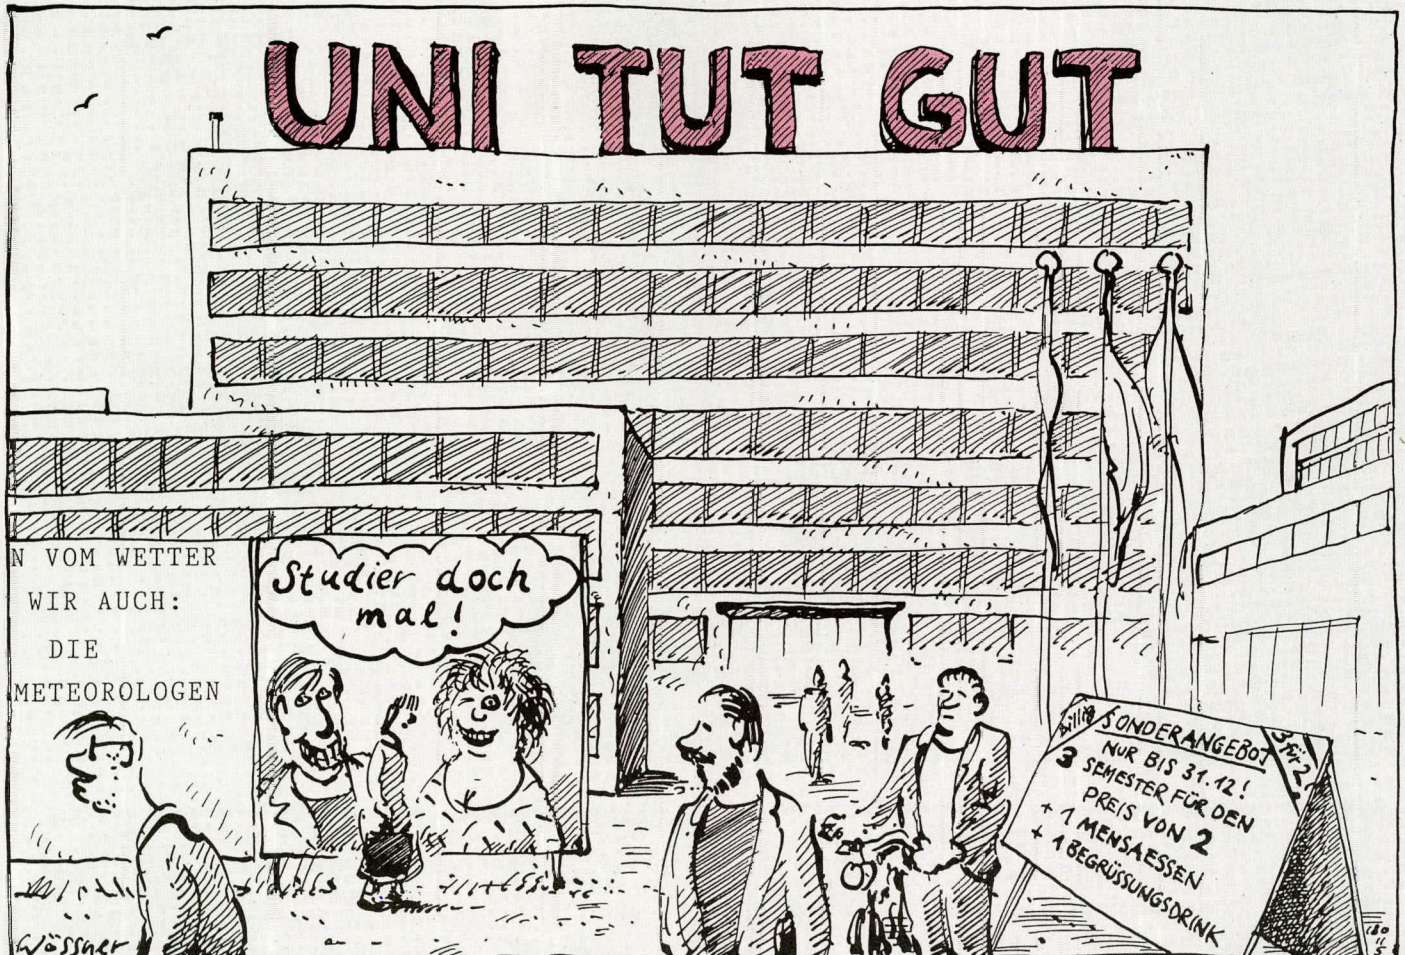 UNI TUT GUT
N VOM WETTER
WIR AUCH:
DIE
METEOROLOGEN
Studier doch
mal!
billig
SONDERANGEBOT
3 für 2
NUR BIS 31.12!
3 SEMESTER FÜR DEN
PREIS VON 2
+ 1 MENSAESSEN
+ 1 BEGRÜSSUNGSDRINK
Wössner